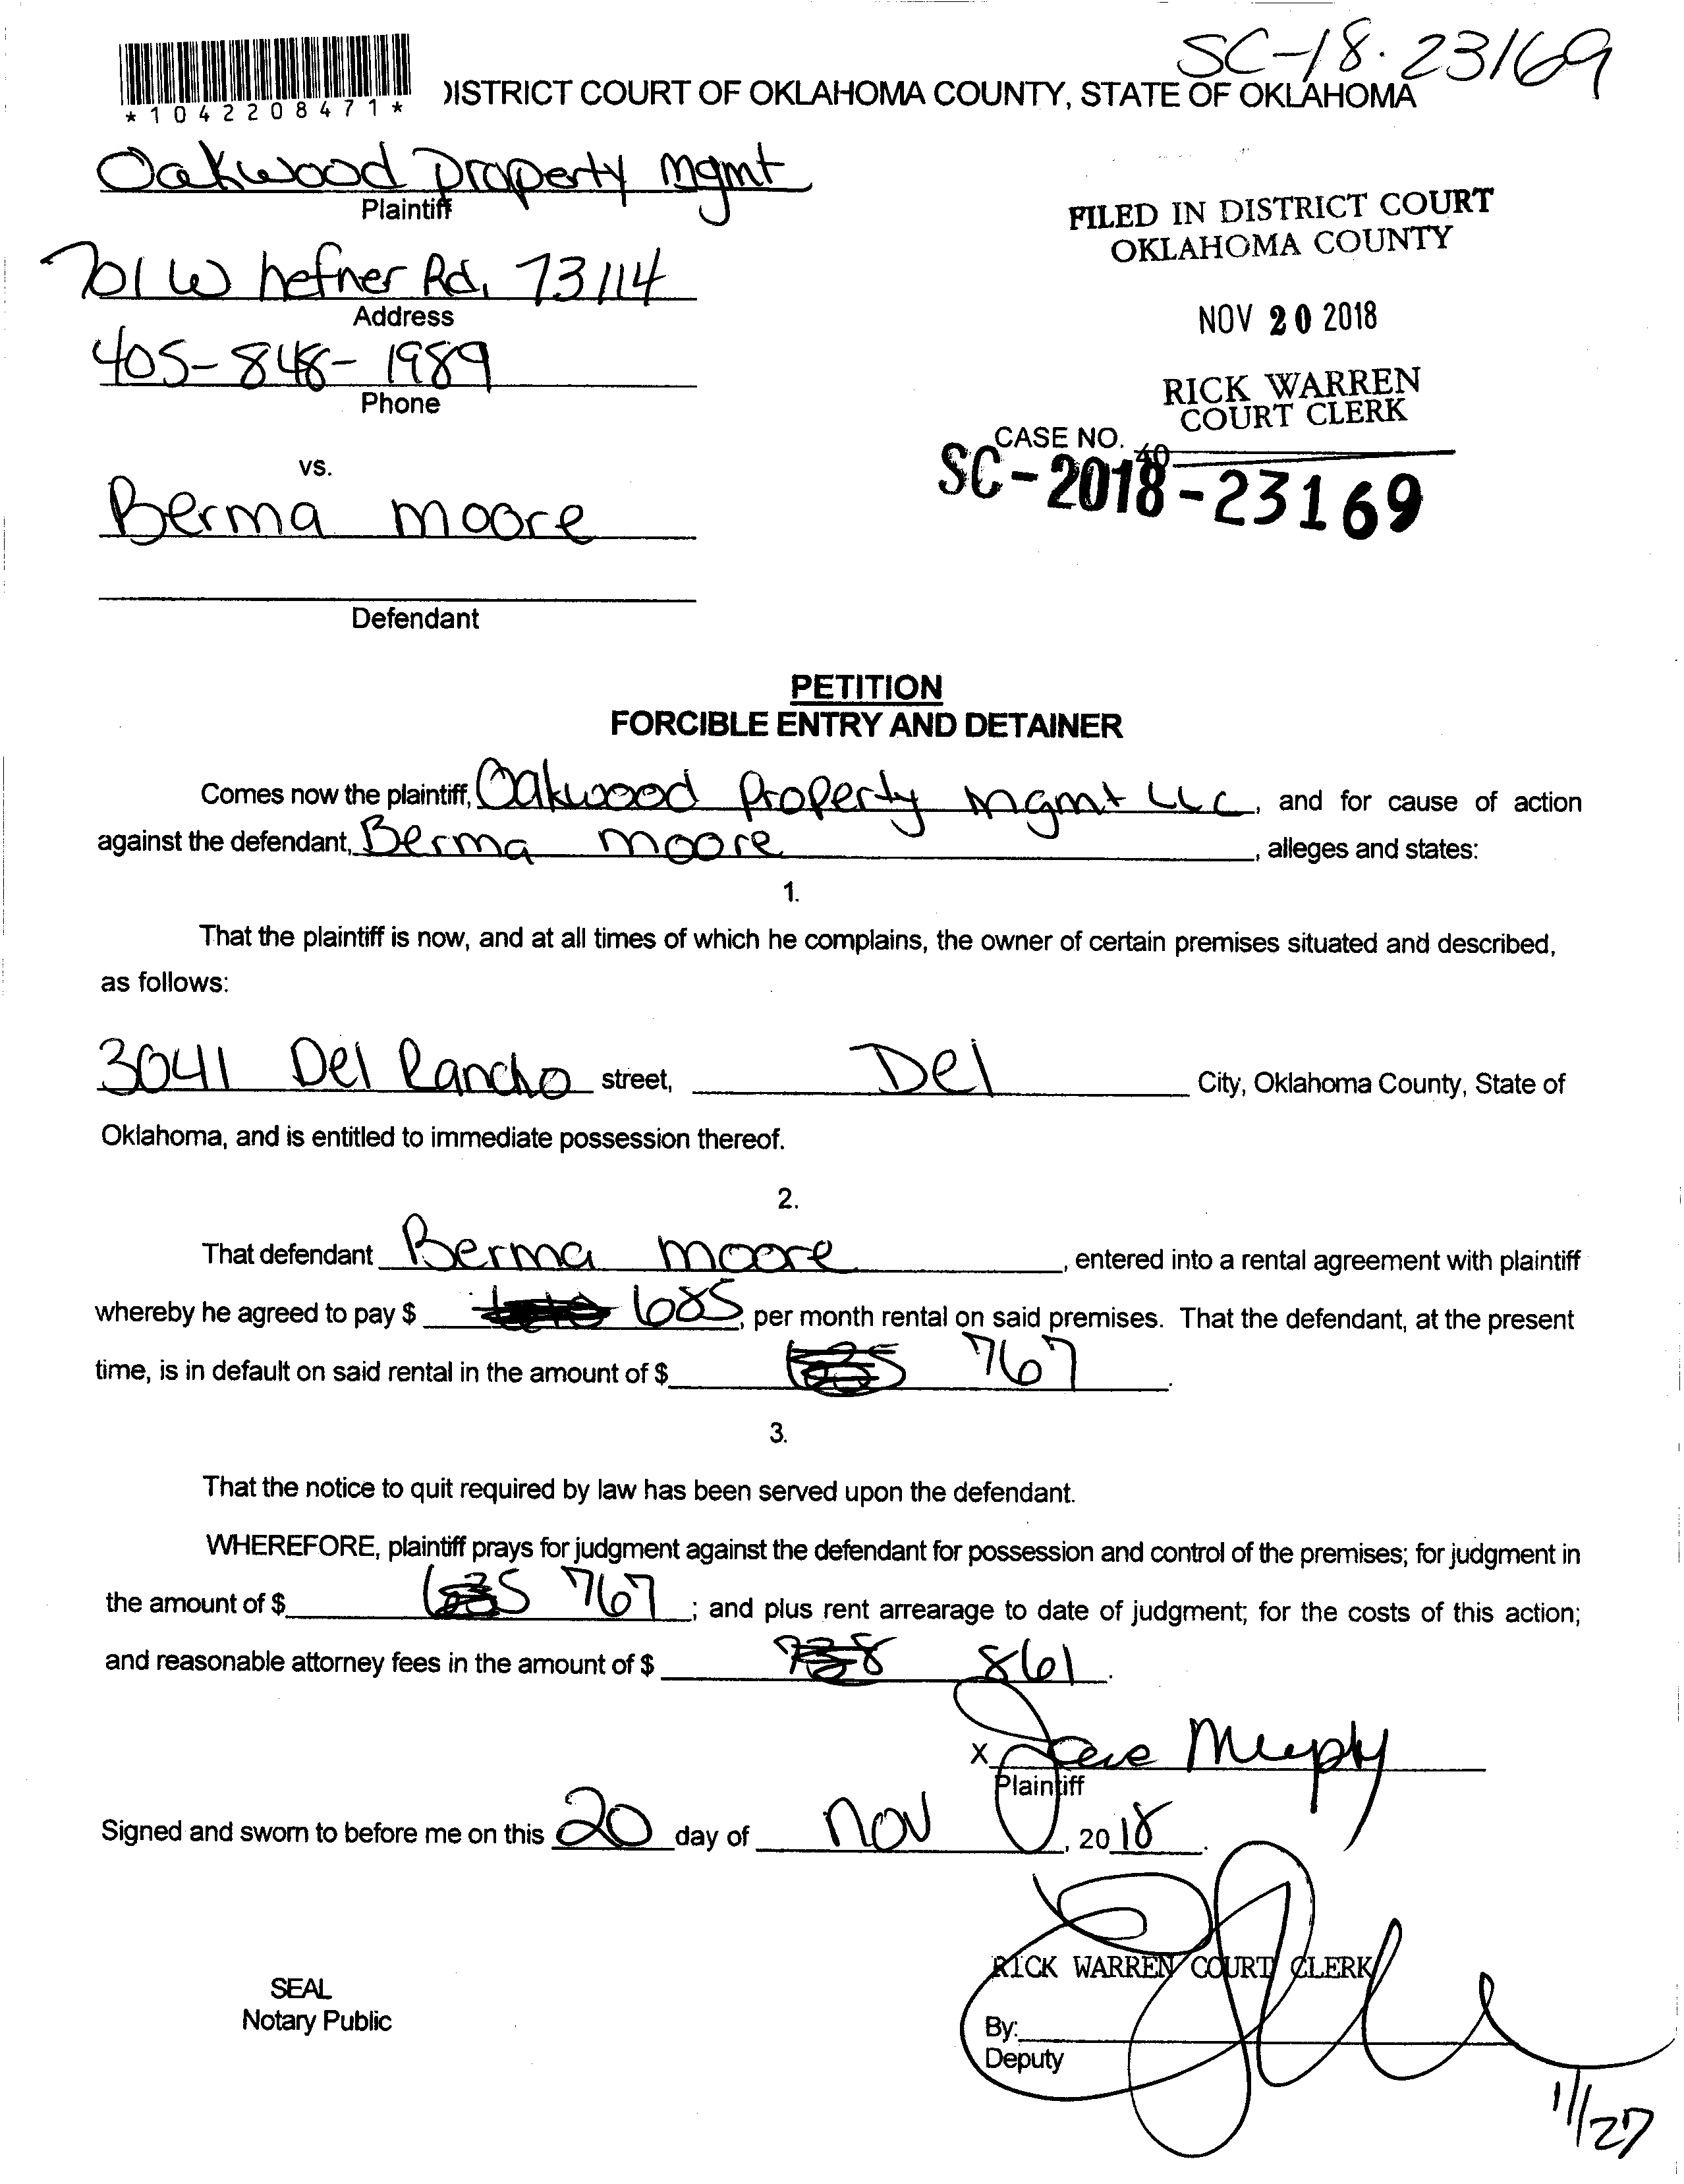 SC-18-23169
*1042208471*
DISTRICT COURT OF OKLAHOMA COUNTY, STATE OF OKLAHOMA
Oakwood Property Mgmt
Plaintiff
701 W hefner Rd, 73114
Address
405-848-1989
Phone
FILED IN DISTRICT COURT
OKLAHOMA COUNTY
NOV 20 2018
RICK WARREN
COURT CLERK
CASE NO.
40
SC-2018-23169
vs.
Berma Moore
Defendant
PETITION
FORCIBLE ENTRY AND DETAINER
Comes now the plaintiff, Oakwood Property Mgmt LLC, and for cause of action
against the defendant, Berma Moore, alleges and states:
1.
That the plaintiff is now, and at all times of which he complains, the owner of certain premises situated and described,
as follows:
3041 Del Rancho street, Del City, Oklahoma County, State of
Oklahoma, and is entitled to immediate possession thereof.
2.
That defendant Berma Moore, entered into a rental agreement with plaintiff
whereby he agreed to pay $ 685, per month rental on said premises. That the defendant, at the present
time, is in default on said rental in the amount of $ 767.
3.
That the notice to quit required by law has been served upon the defendant.
WHEREFORE, plaintiff prays for judgment against the defendant for possession and control of the premises; for judgment in
the amount of $ 767; and plus rent arrearage to date of judgment; for the costs of this action;
and reasonable attorney fees in the amount of $ 861.
X Murphy
Plaintiff
Signed and sworn to before me on this 20 day of Nov, 2018.
RICK WARREN COURT CLERK
SEAL
Notary Public
By:
Deputy
11/27